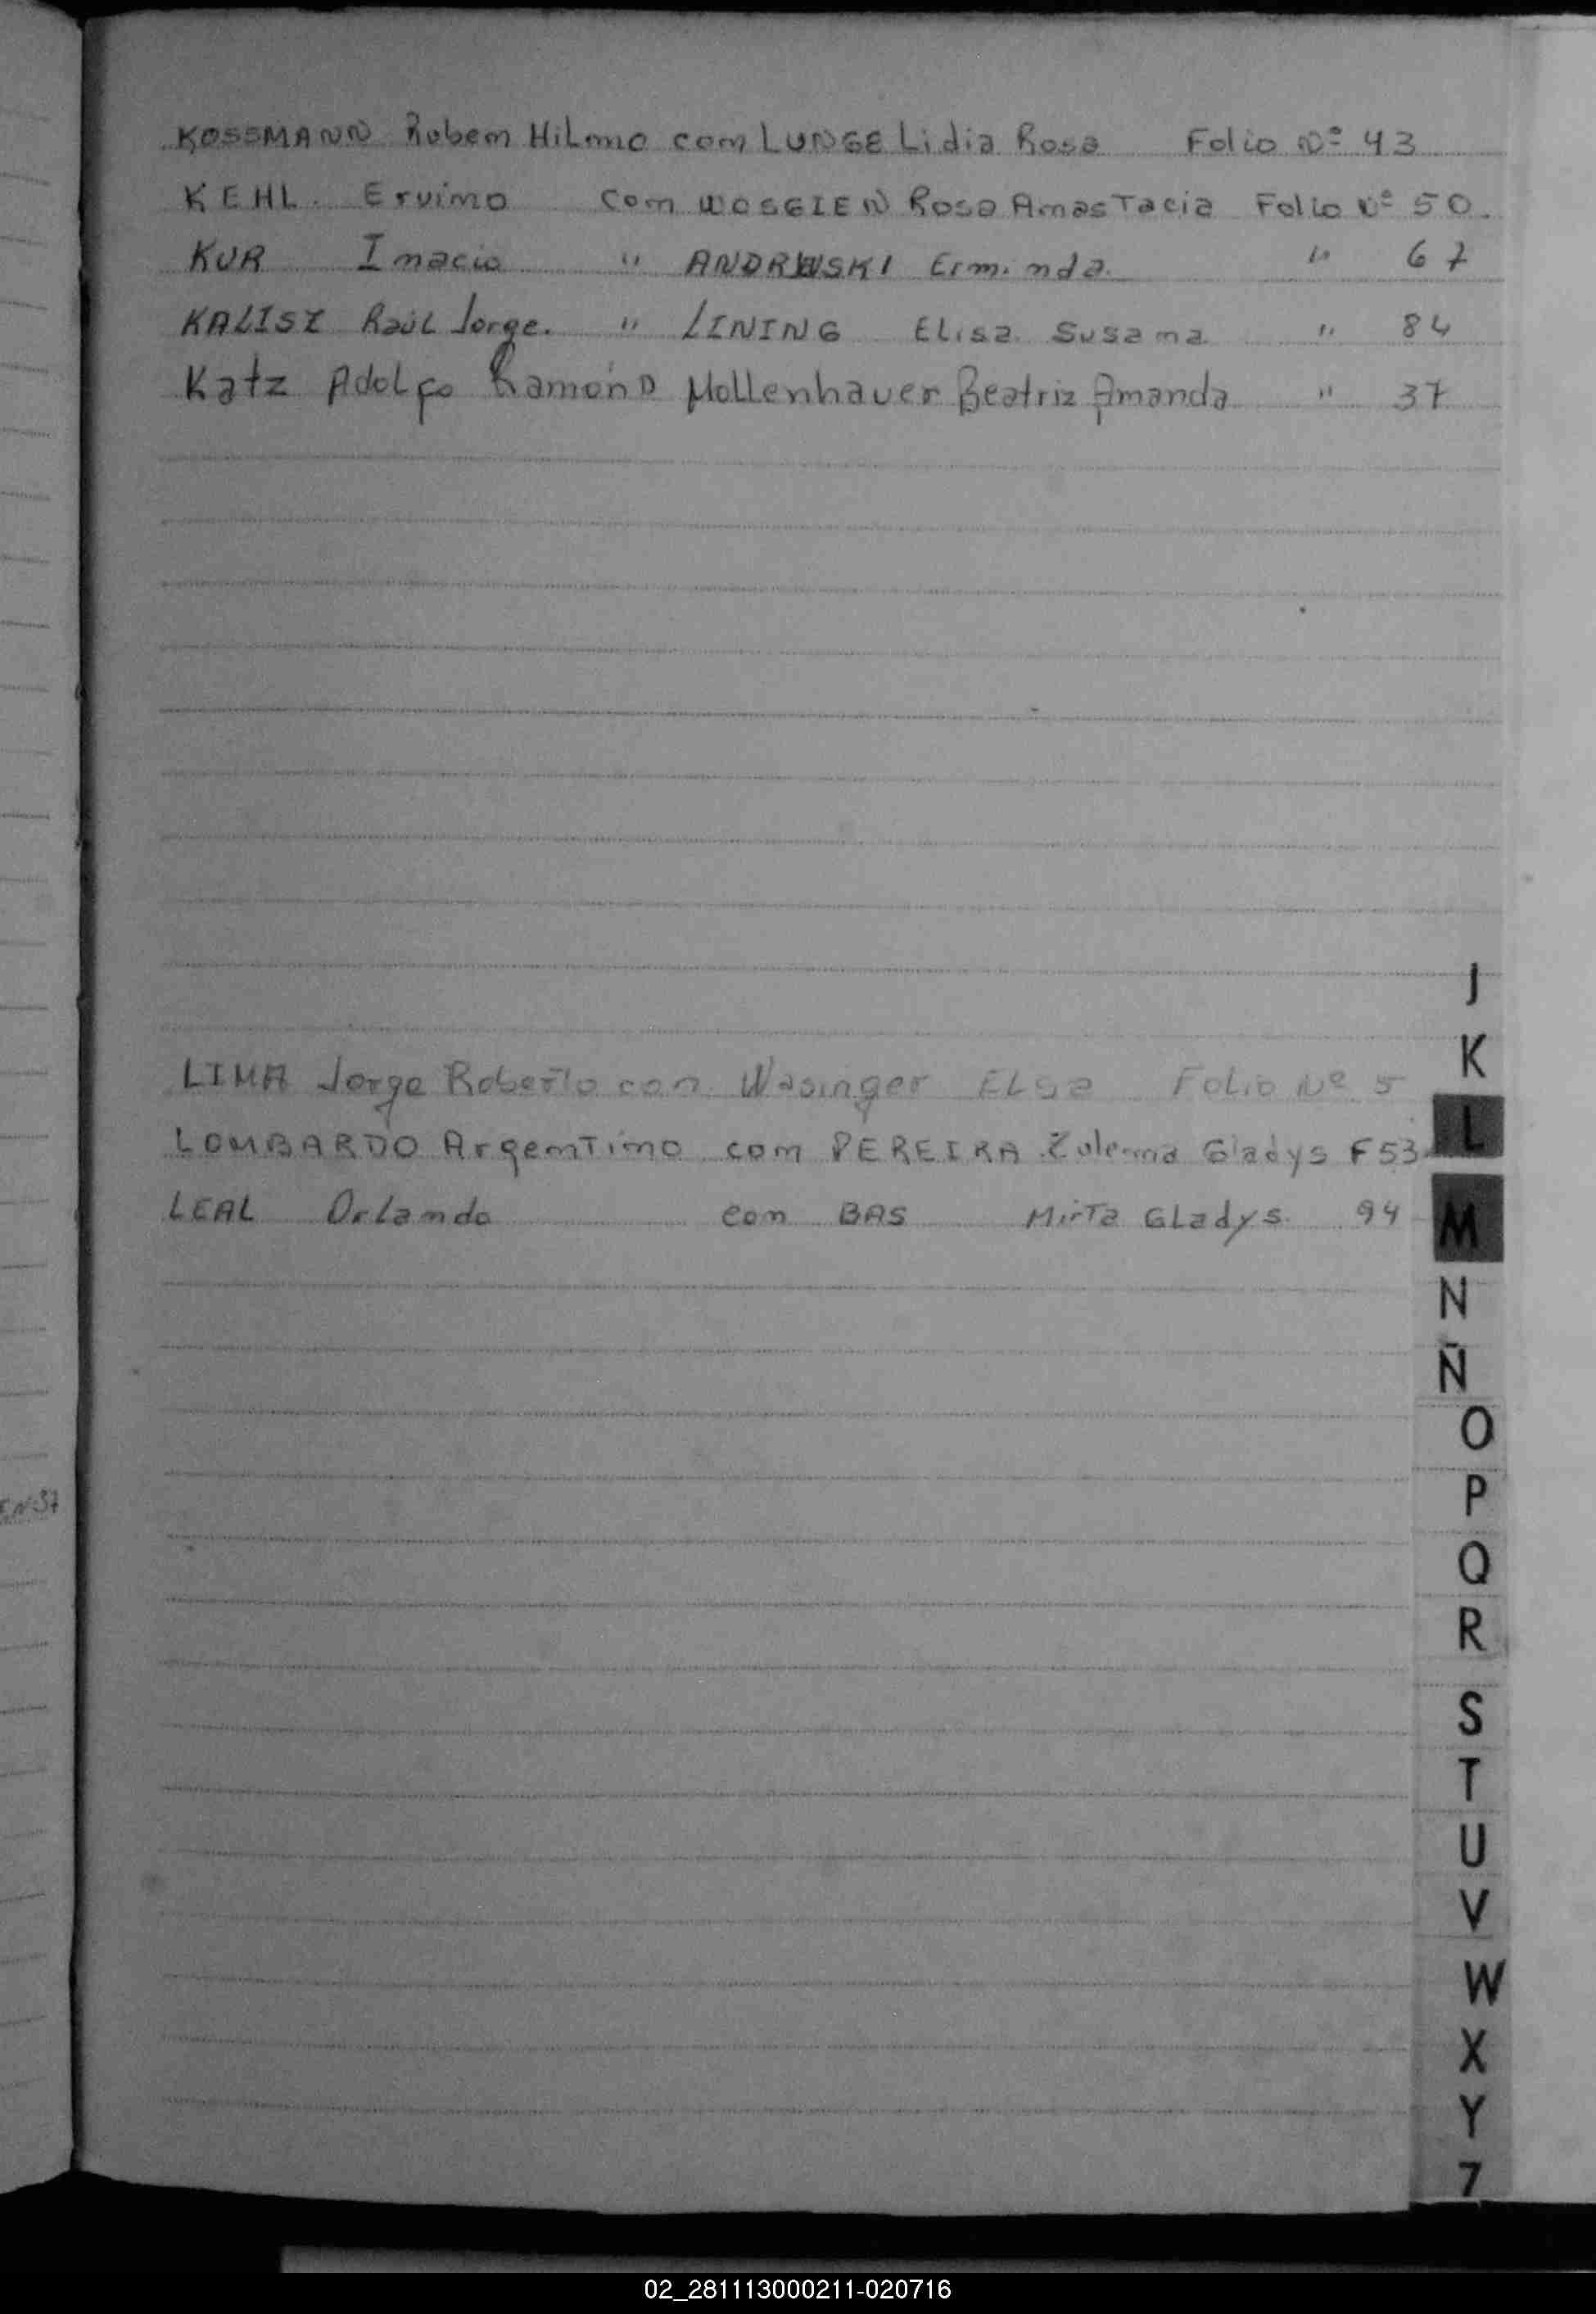 KOSSMANN Ruben Hilmo con LUNGE Lidia Rosa Folio Nº 43
KEHL Ervino con WOSGIEN Rosa Anastacia Folio Nº 50.
KUR Inacio " ANDRUSKI Erminda. " 67
KALISZ Raúl Jorge. " LINING Elisa Susana " 84
Katz Adolfo Ramón Mollenhauer Beatriz Amanda " 37
LIMA Jorge Roberto con Wasinger Elsa Folio Nº 5
LOMBARDO Argentino con PEREIRA Zulema Gladys F 53
LEAL Orlando con BAS Mirta Gladys. 94
J
K
L
M
N
Ñ
O
P
Q
R
S
T
U
V
W
X
Y
7
02_281113000211-020716